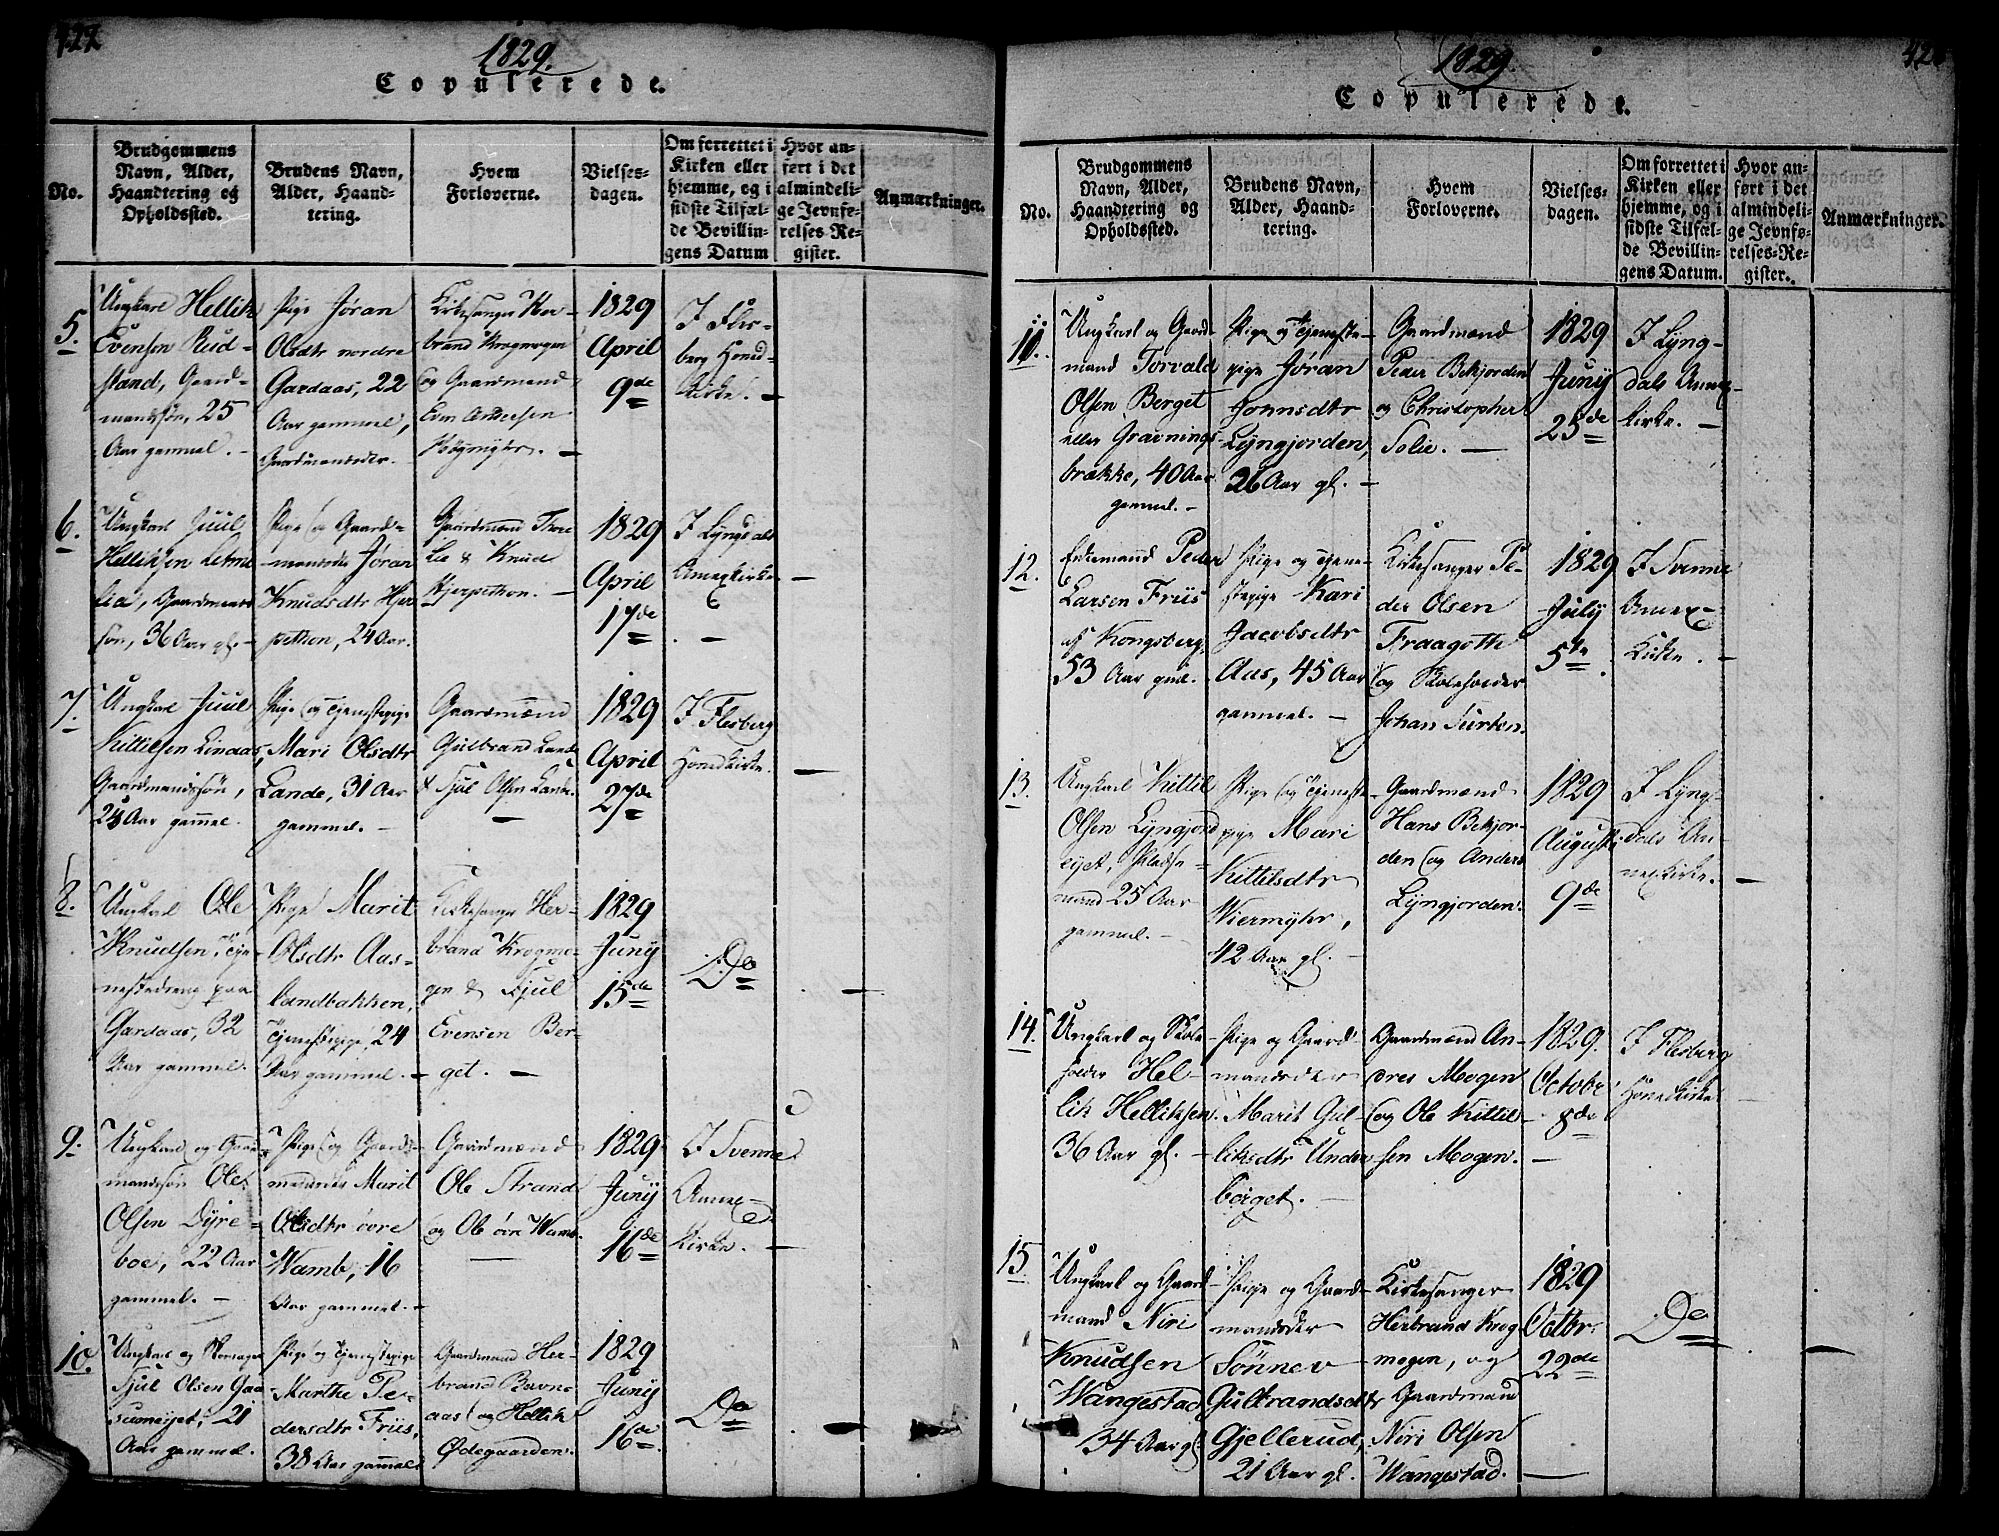 427
1829.
Copulerede.
No.
Brudgommens
Navn, Alder,
Haandtering og
Opholdssted.
Brudens Navn,
Alder, Haand-
tering.
Hvem
Forloverne.
Vielses-
dagen.
Om forrettet i
Kirken eller
hjemme, og i
sidste Tilfæl-
de Bevillin-
gens Datum
Hvor an-
ført i det
almindeli-
ge Jevnfø-
relses-Re-
gister.
Anmærkninger.
5.
Ungkarl Hellik
Evensen Rud-
stand, Gaard-
mandssøn, 25
Aar gammel. -
Pige Jøran
Olsdtr nordre
Gardaas, 22
Aar gammel,
Gaardmandsdtr.
Kirkesanger Her-
brand Krogmogen
og Gaardmand
Even Andersen
Høgmyhr. -
1829
April
9de
I Fles-
berg Hoved-
kirke. -
6.
Ungkarl Juul
Helliksen Lekne
lia, Gaardmands
søn, 36 Aar gl. -
Pige og Gaard-
mandsdr Jøran
Knudsdtr Hjer
pethon, 24 Aar.
Gaardmænd Thore
Lie & Knud
Hjerpethon. -
1829
April
17de
I Lyngdals
Annexkirke
. -
7.
Ungkarl Juul
Kittilsen Linaas,
Gaardmandssøn,
28 Aar gammel.
Pige og Tjenestepige
Mari Olsdtr
Lande, 31 Aar
gammel. -
Gaardmænd
Gulbrand Lande
& Tjül Olsen Lande.
-
1829
April
27de
I Flesberg
Hovedkirke.
-
8.
Ungkarl Ole
Knudsen, Tje-
nestedreng paa
Gardaas, 32
Aar gammel.
Pige Marit
Olsdtr Aas-
landbakken,
Tjenestepige, 24
Aar gammel. -
Kirkesanger Her-
brand Krogmo-
gen & Tjul
Evensen Ber-
get. -
1829
Juny
15de
Do
-
9.
Ungkarl og Gaard-
mandssøn Ole
Olsen Dyre-
boe, 22 Aar
gammel. -
Pige og Gaard-
mandsdr Marit
Olsdtr øvre
Wamb, 16
Aar gammel. -
Gaardmænd
Ole Strand
og Ole øvre Wamb.
-
1829
Juny
16de
I Svenne
Annex-
kirke. -
10.
Ungkarl og
Tjül Olsen Gaa
suneyet, 21
Aar gammel.
Pige og Tjenestepige
Marthe Pe-
dersdtr Friis,
38 Aar gammel
Gaardmænd Her-
brand Bevre-
aas og Hellik
Ødegaarden.
1829
Juny
16de
Do
-
428
1829.
Copulerede.
No.
Brudgommens
Navn, Alder,
Haandtering og
Opholdssted.
Brudens Navn,
Alder, Haand-
tering.
Hvem
Forloverne.
Vielses-
dagen.
Om forrettet i
Kirken eller
hjemme, og i
sidste Tilfæl-
de Bevillin-
gens Datum.
Hvor an-
ført i det
almindeli-
ge Jevnfø-
relses-Re-
gister.
Anmærkninger.
11.
Ungkarl og Gaard-
mand Torvald
Olsen Berget
eller Gravnings-
brække, 40 Aar
gammel. -
Pige og Tjeneste-
pige Jøran
Jonnsdtr
Lyngjorden,
26 Aar gl. -
Gaardmænd
Peder Bekjorden
og Christopher
Solie. -
1829
Juny
25de
I Lyng-
dals Annex-
kirke. -
12.
Enkemand Peder
Larsen Friis
af Kongsberg,
53 Aar gml.
Pige og Tjene-
stepige Kari
Jacobsdtr
Aas, 45 Aar
gammel. -
Kirkesanger Pe-
der Olsen
Fraagotte
og Skoleholder
Johan Turten.
1829
July
5te
I Svenne
Annex-
Kirke. -
13.
Ungkarl Kittil
Olsen Lyngjord
eyet, Pladse-
mand 25 Aar
gammel. -
Pige og Tjeneste-
pige Mari
Kittilsdtr
Wiermyhr,
42 Aar gl. -
Gaardmænd
Hans Bekjor-
den og Anders
Lyngjorden.
1829
August
9de
I Lyng-
dals An-
nexkirke. -
14.
Ungkarl og Skole
holder Hel-
lik Helliksen.
36 Aar gl. -
Pige og Gaard-
mandsdtr
Marit Gul-
liksdtr Under
berget. -
Gaardmænd An-
dres Mogen
og Ole Kittil-
sen Mogen.
1829.
Octobr
8de
-
I Flesberg
Hovedkirke
15
Ungkarl og Gaard-
mand Niri
Knudsen
Wangestad
34 Aar gl.
Pige og Gaard-
mandsdtr
Sønnev
Gulbrandsdtr
Gjellerud,
21 Aar gl.
Kirkesanger
Herbrand Krog-
mogen, og
Gaardmand
Niri Olsen
Wangestad.
1829
Octbr.
22de
-
Do
-